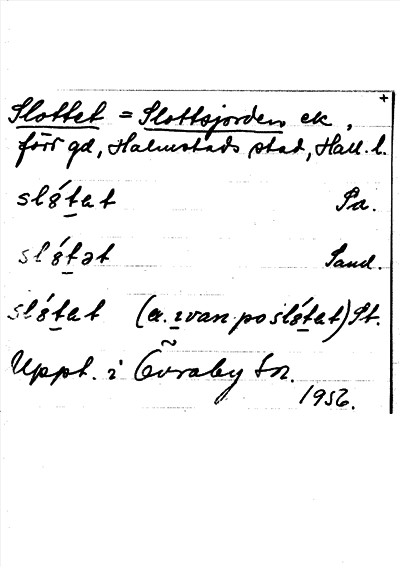 +
Slottet = Slottsjorden ek,
förr gd, Halmstads stad, Hall. l.
slótat Pa.
slótət Sand.
slótat (a. ivan po slótat) St.
Uppt. i Övraby sn.
1956.